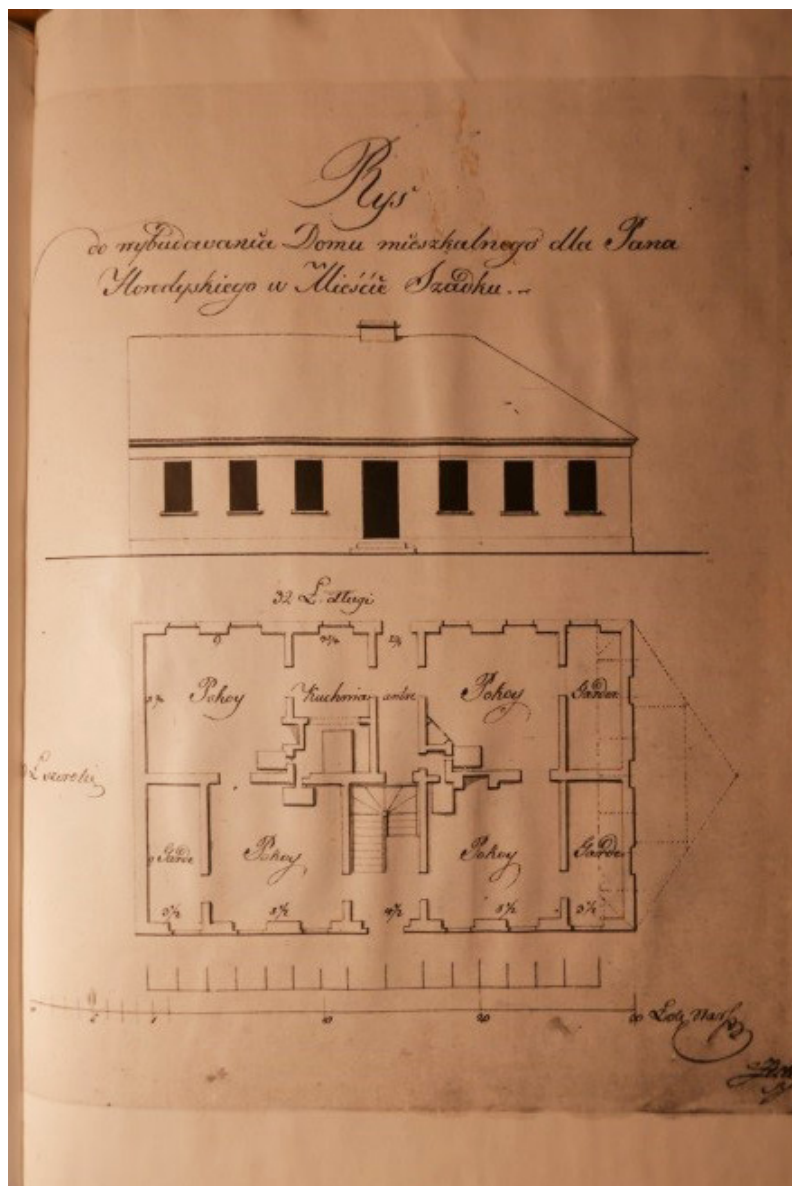 Rys
do wybudowania Domu mieszkalnego dla Pana
Horodyskiego w Mieście Szadku
32 Ł. długi
9 3¾
Pokoy Kuchnia Pokoy Garder.
Ł szeroki
Garde Pokoy Pokoy Garde.
3½ 5½ 4½ 5½ 3½
10 20 30 Łok.